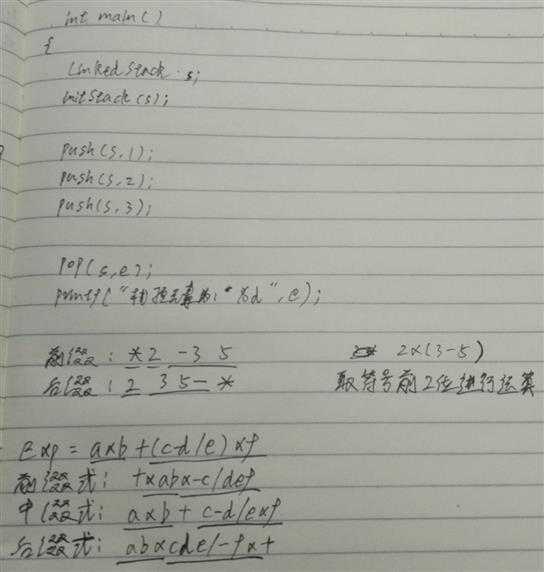 int main()
{
Linked Stack s;
initStack(s);
push(s,1);
push(s,2);
push(s,3);
pop(s,e);
printf("栈顶元素为:%d",e);
前缀: * 2 - 3 5
2×(3-5)
后缀: 2 3 5 - *
取符号前2位进行运算
Exp = a×b+(c-d/e)×f
前缀式: +×ab×-c/def
中缀式: a×b + c-d/e×f
后缀式: ab×cde/-f×+